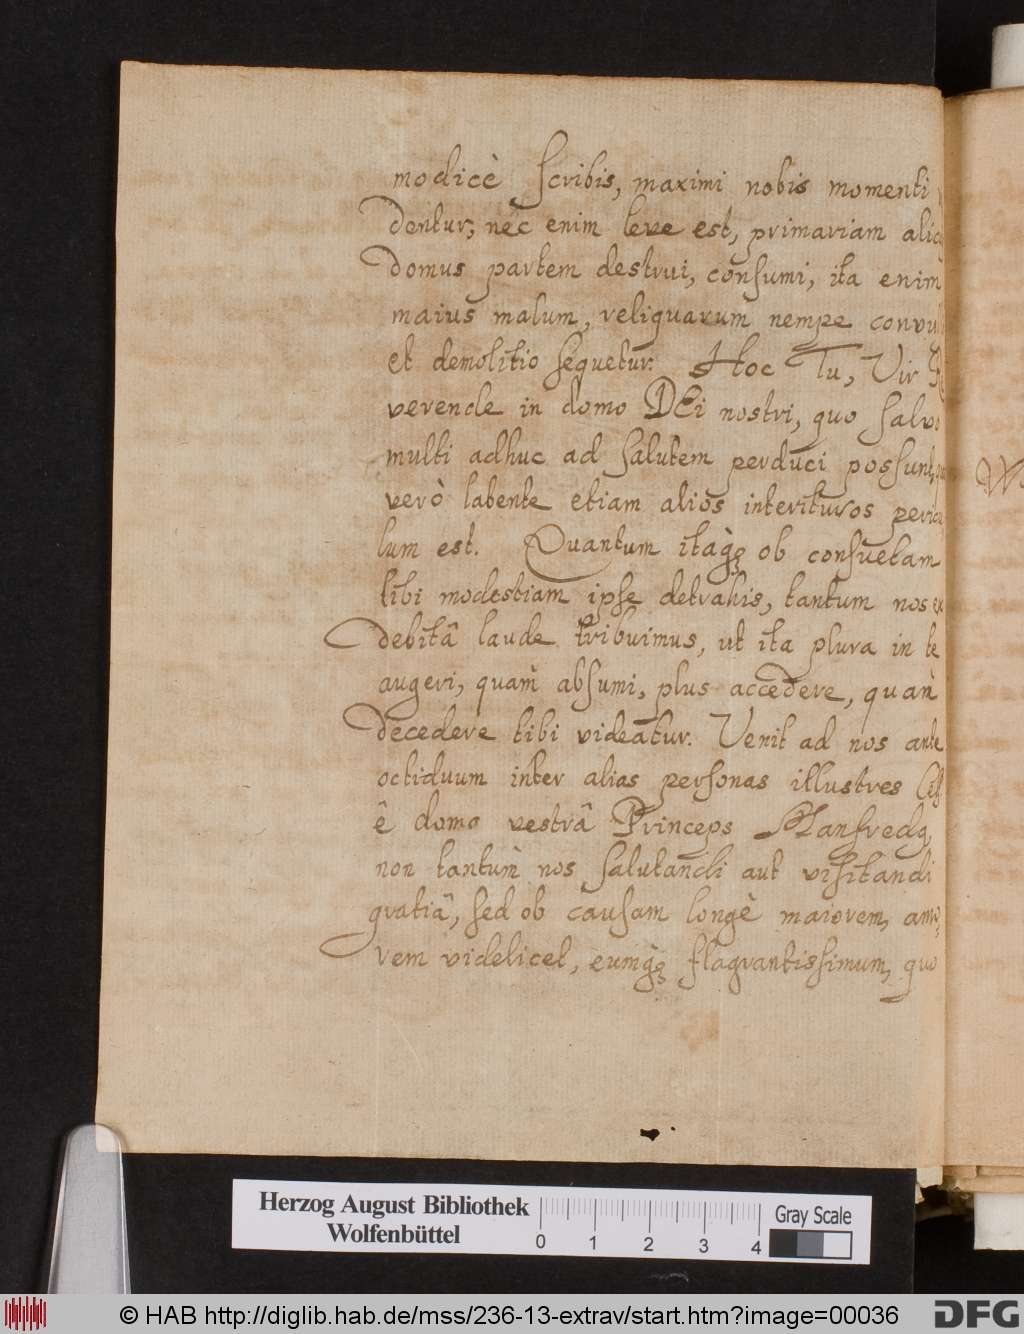 modicè scribis, maximi nobis momenti
dentur; nec enim leve est, primariam alic
domus partem destrui, consumi, ita enim
maius malum, reliquarum nempe convul
et demolitio sequetur. Hoc Tu, Vir Re
verende in domo DEi nostri, quo salvo
multi adhuc ad salutem perduci possunt,
verò labente etiam alios interituros pericu
lum est. Quantum itaq̀ꝫ ob consuetam
tibi modestiam ipse detrahis, tantum nos ex
debitâ laude tribuimus, ut ita plura in te
augeri, quam̀ absumi, plus accedere, quam̀
decedere tibi videatur. Venit ad nos ante
octiduum inter alias personas illustres Cels
ê domo vestrâ Princeps Manfredꝰ,
non tantum̀ nos salutandi aut visitandi
gratiâ, sed ob causam longè maiorem, amo
rem videlicet, eumq̀ꝫ flagrantissimum, quo
Herzog August Bibliothek
Wolfenbüttel
0 1 2 3 4
Gray Scale
© HAB http://diglib.hab.de/mss/236-13-extrav/start.htm?image=00036
DFG